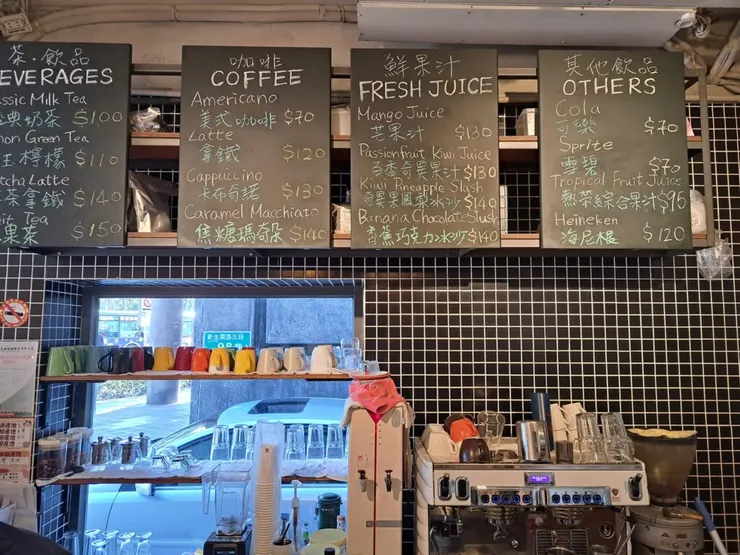 茶.飲品
BEVERAGES
Classic Milk Tea
經典奶茶 $100
Lemon Green Tea
玉檸檬 $110
Matcha Latte
抹茶拿鐵 $140
Fruit Tea
水果茶 $150
咖啡
COFFEE
Americano
美式咖啡 $70
Latte
拿鐵 $120
Cappuccino
卡布奇諾 $130
Caramel Macchiato
焦糖瑪奇朵 $140
鮮果汁
FRESH JUICE
Mango Juice
芒果汁 $130
Passionfruit Kiwi Juice
百香奇異果汁 $130
Kiwi Pineapple Slush
奇異果鳳梨冰沙 $140
Banana Chocolate Slush
香蕉巧克力冰沙 $140
其他飲品
OTHERS
Cola
可樂 $70
Sprite
雪碧 $70
Tropical Fruit Juice
熱帶綜合果汁 $95
Heineken
海尼根 $120
新生南路三段
98